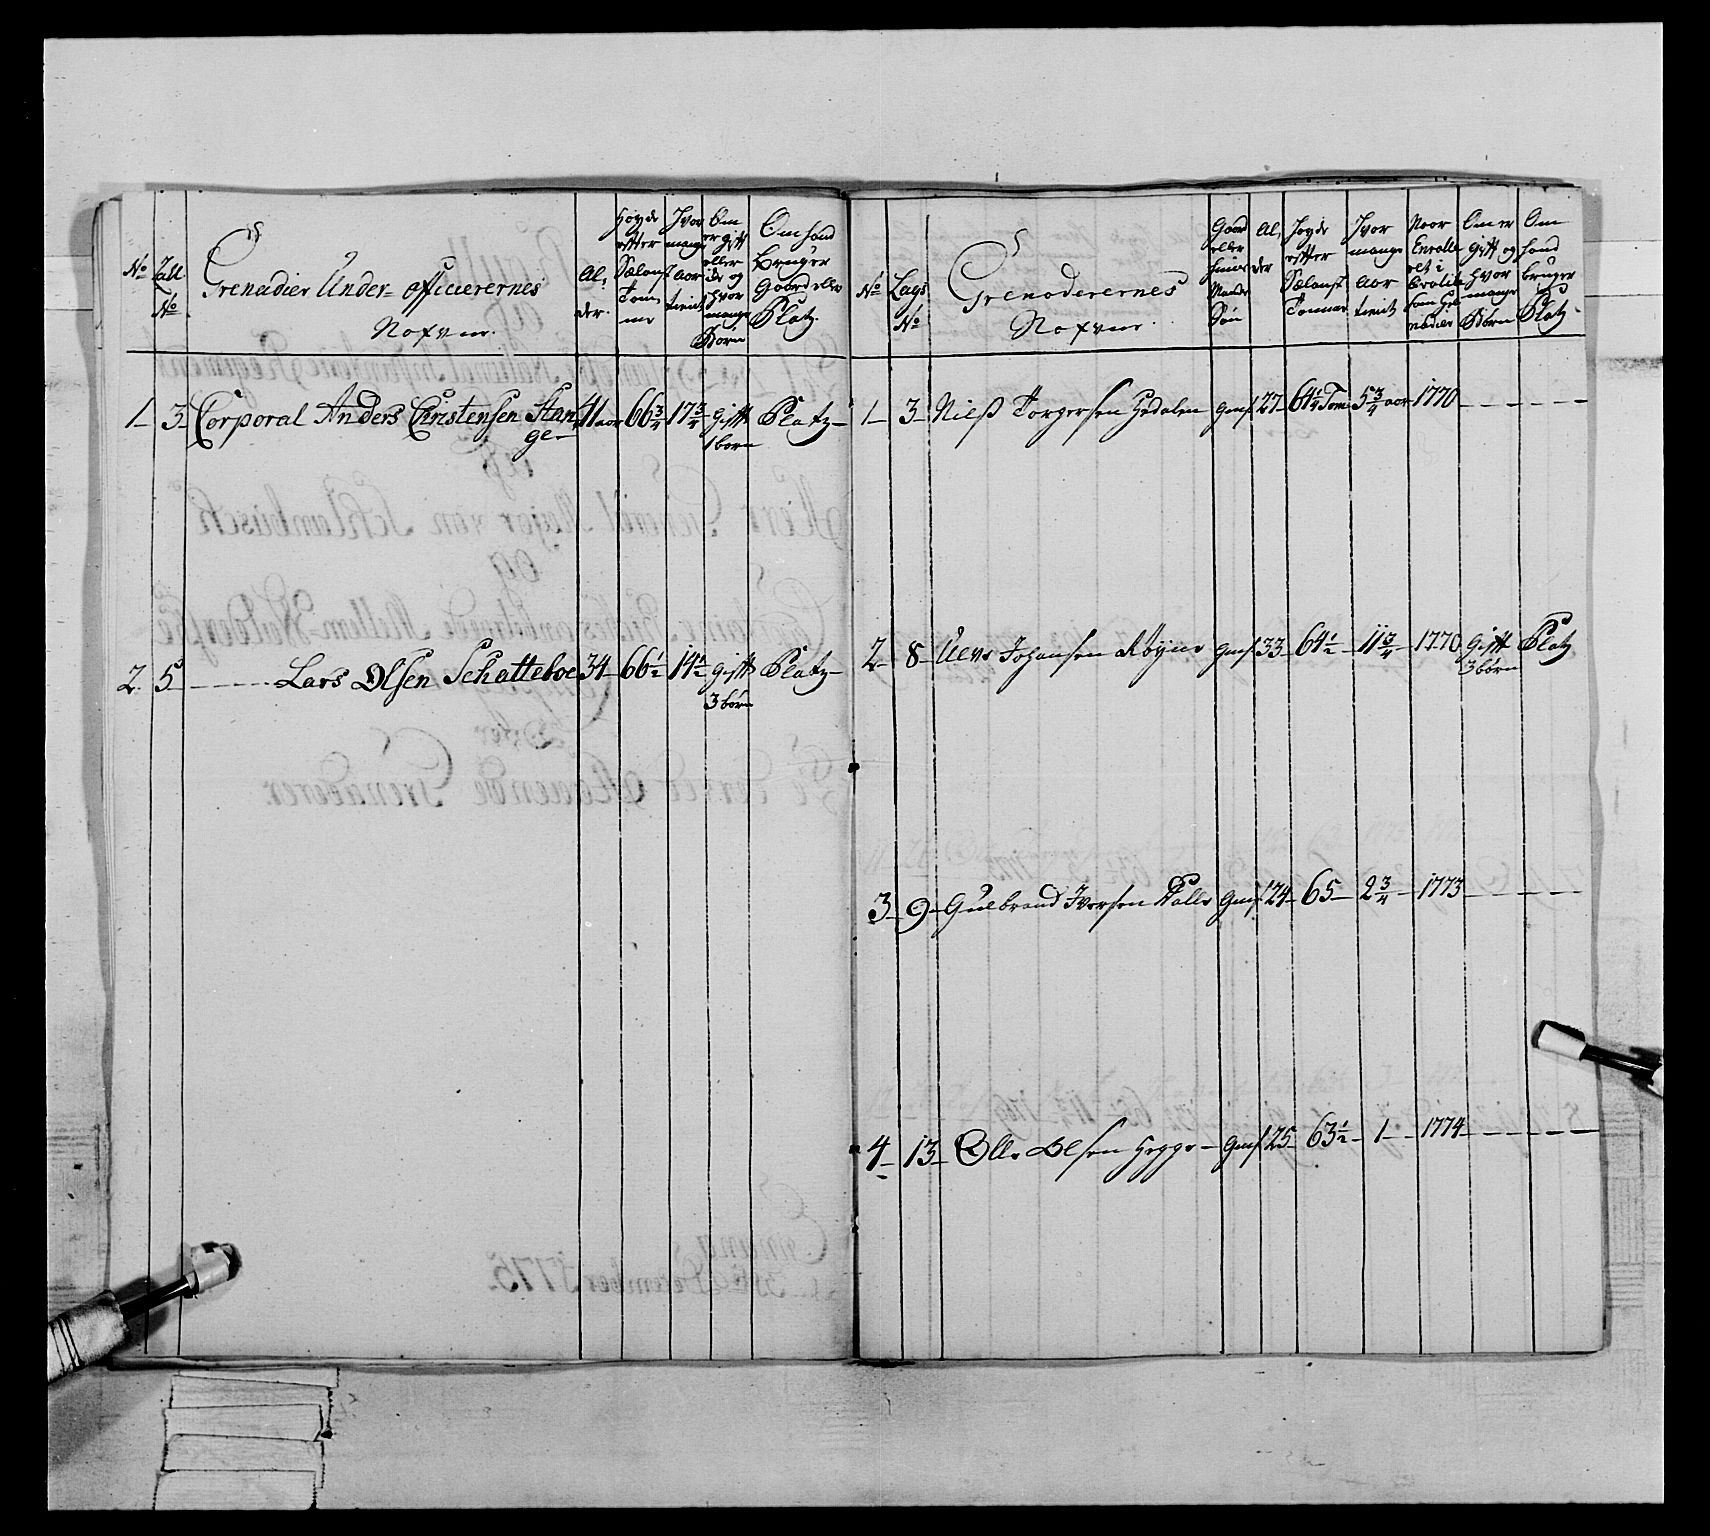 No
Tall No
Grenadier Under-officerernes Nafvne.
Al,der.
Høyde efter Sælansk Tomme
Hvor mange aar tient
Om er gift eller ide og hvor mange Børn
Om hand bruger Gaard eller Platz.
1 3 Corporal Anders Christensen Stange 41 aar 66 3/4 17 3/4 Gift 1 børn Platz
2. 5 Lars Olsen Schatteboe 34 66 1/2 14 1/2 gift 3 børn Platz
No
Lags No
Grenaderernes Nafvne.
Gaard eller Mands Søn
Al,der
Høyde efter Sælansk Tomme
Hvor mange aar tient
Naar
Om er gift og hvor mange Børn
Om hand bruger Platz
1 3 Nielß Torgersen Hedalen 27 64 1/4 Tom 5 3/4 aar 1770
2 8 Johansen 33 64 1/2 11 3/4 1770 Gift 3 børn Platz
3 9 Gulbrand Iversen 24 65 2 3/4 1773
4 13 Olle Olsen Hegge 25 63 1/2 1 1774